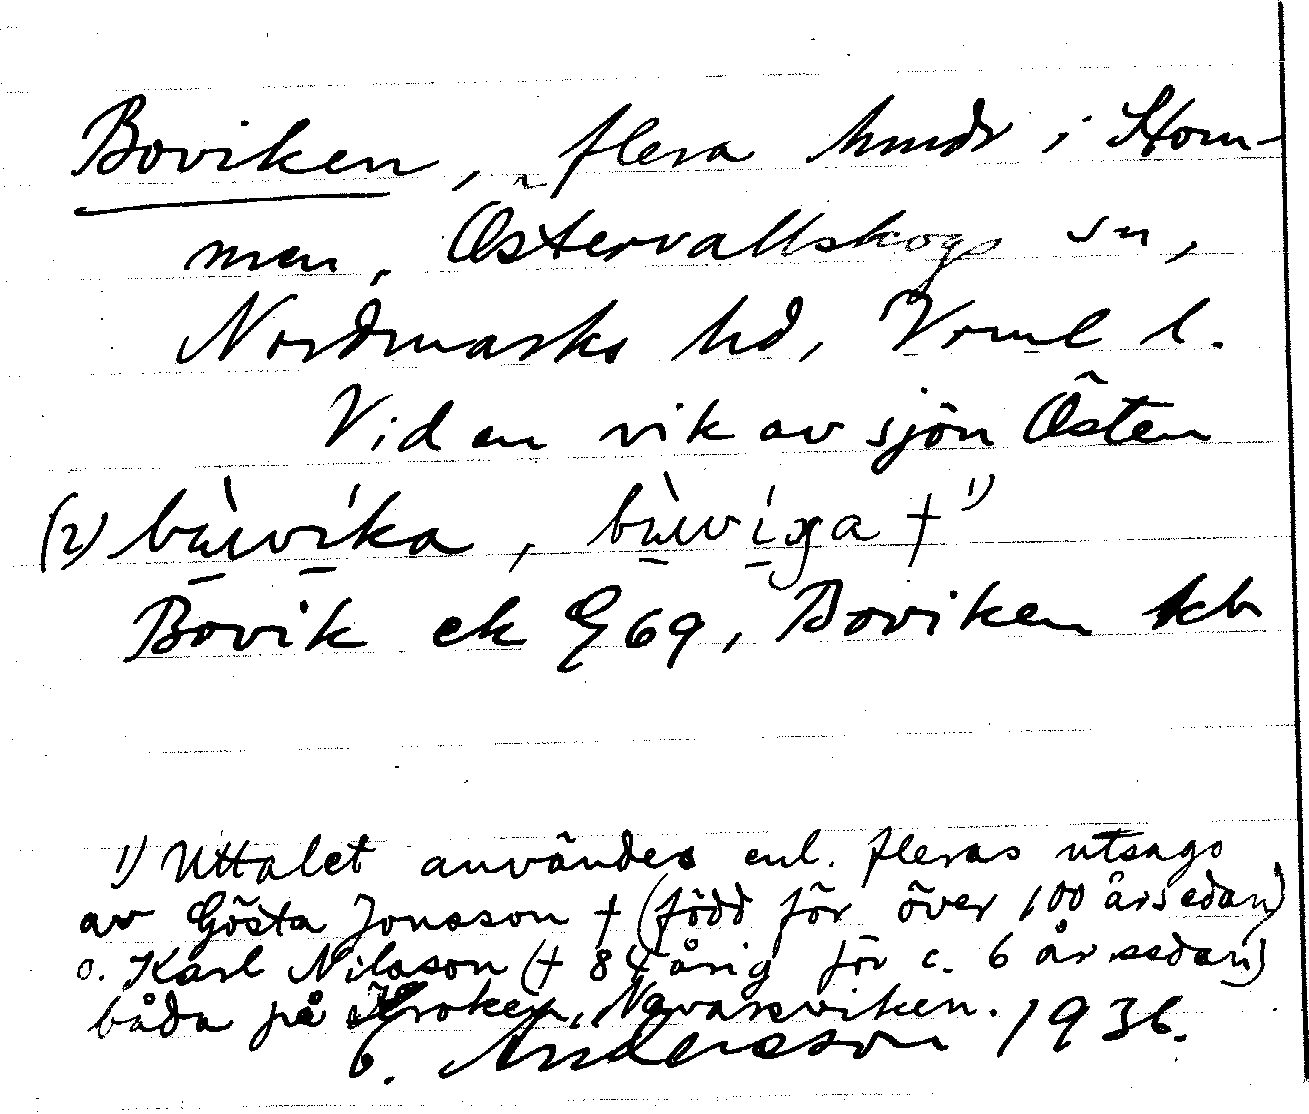 Boviken, flera hmdr i Hom-
men, Östervallskogs sn,
Nordmarks hd, Vrml l.
Vid en vik av sjön Östen
(2) bùwvíka, bùwvíga †1)
Bovik ek G69, Boviken kb
1) Uttalet användes enl. fleras utsago
av Gösta Jonsson † (född för över 100 år sedan)
o. Karl Nilsson († 84 årig för c. 6 år sedan)
båda på Kroken, Navarviken.
G. Andersson 1936.